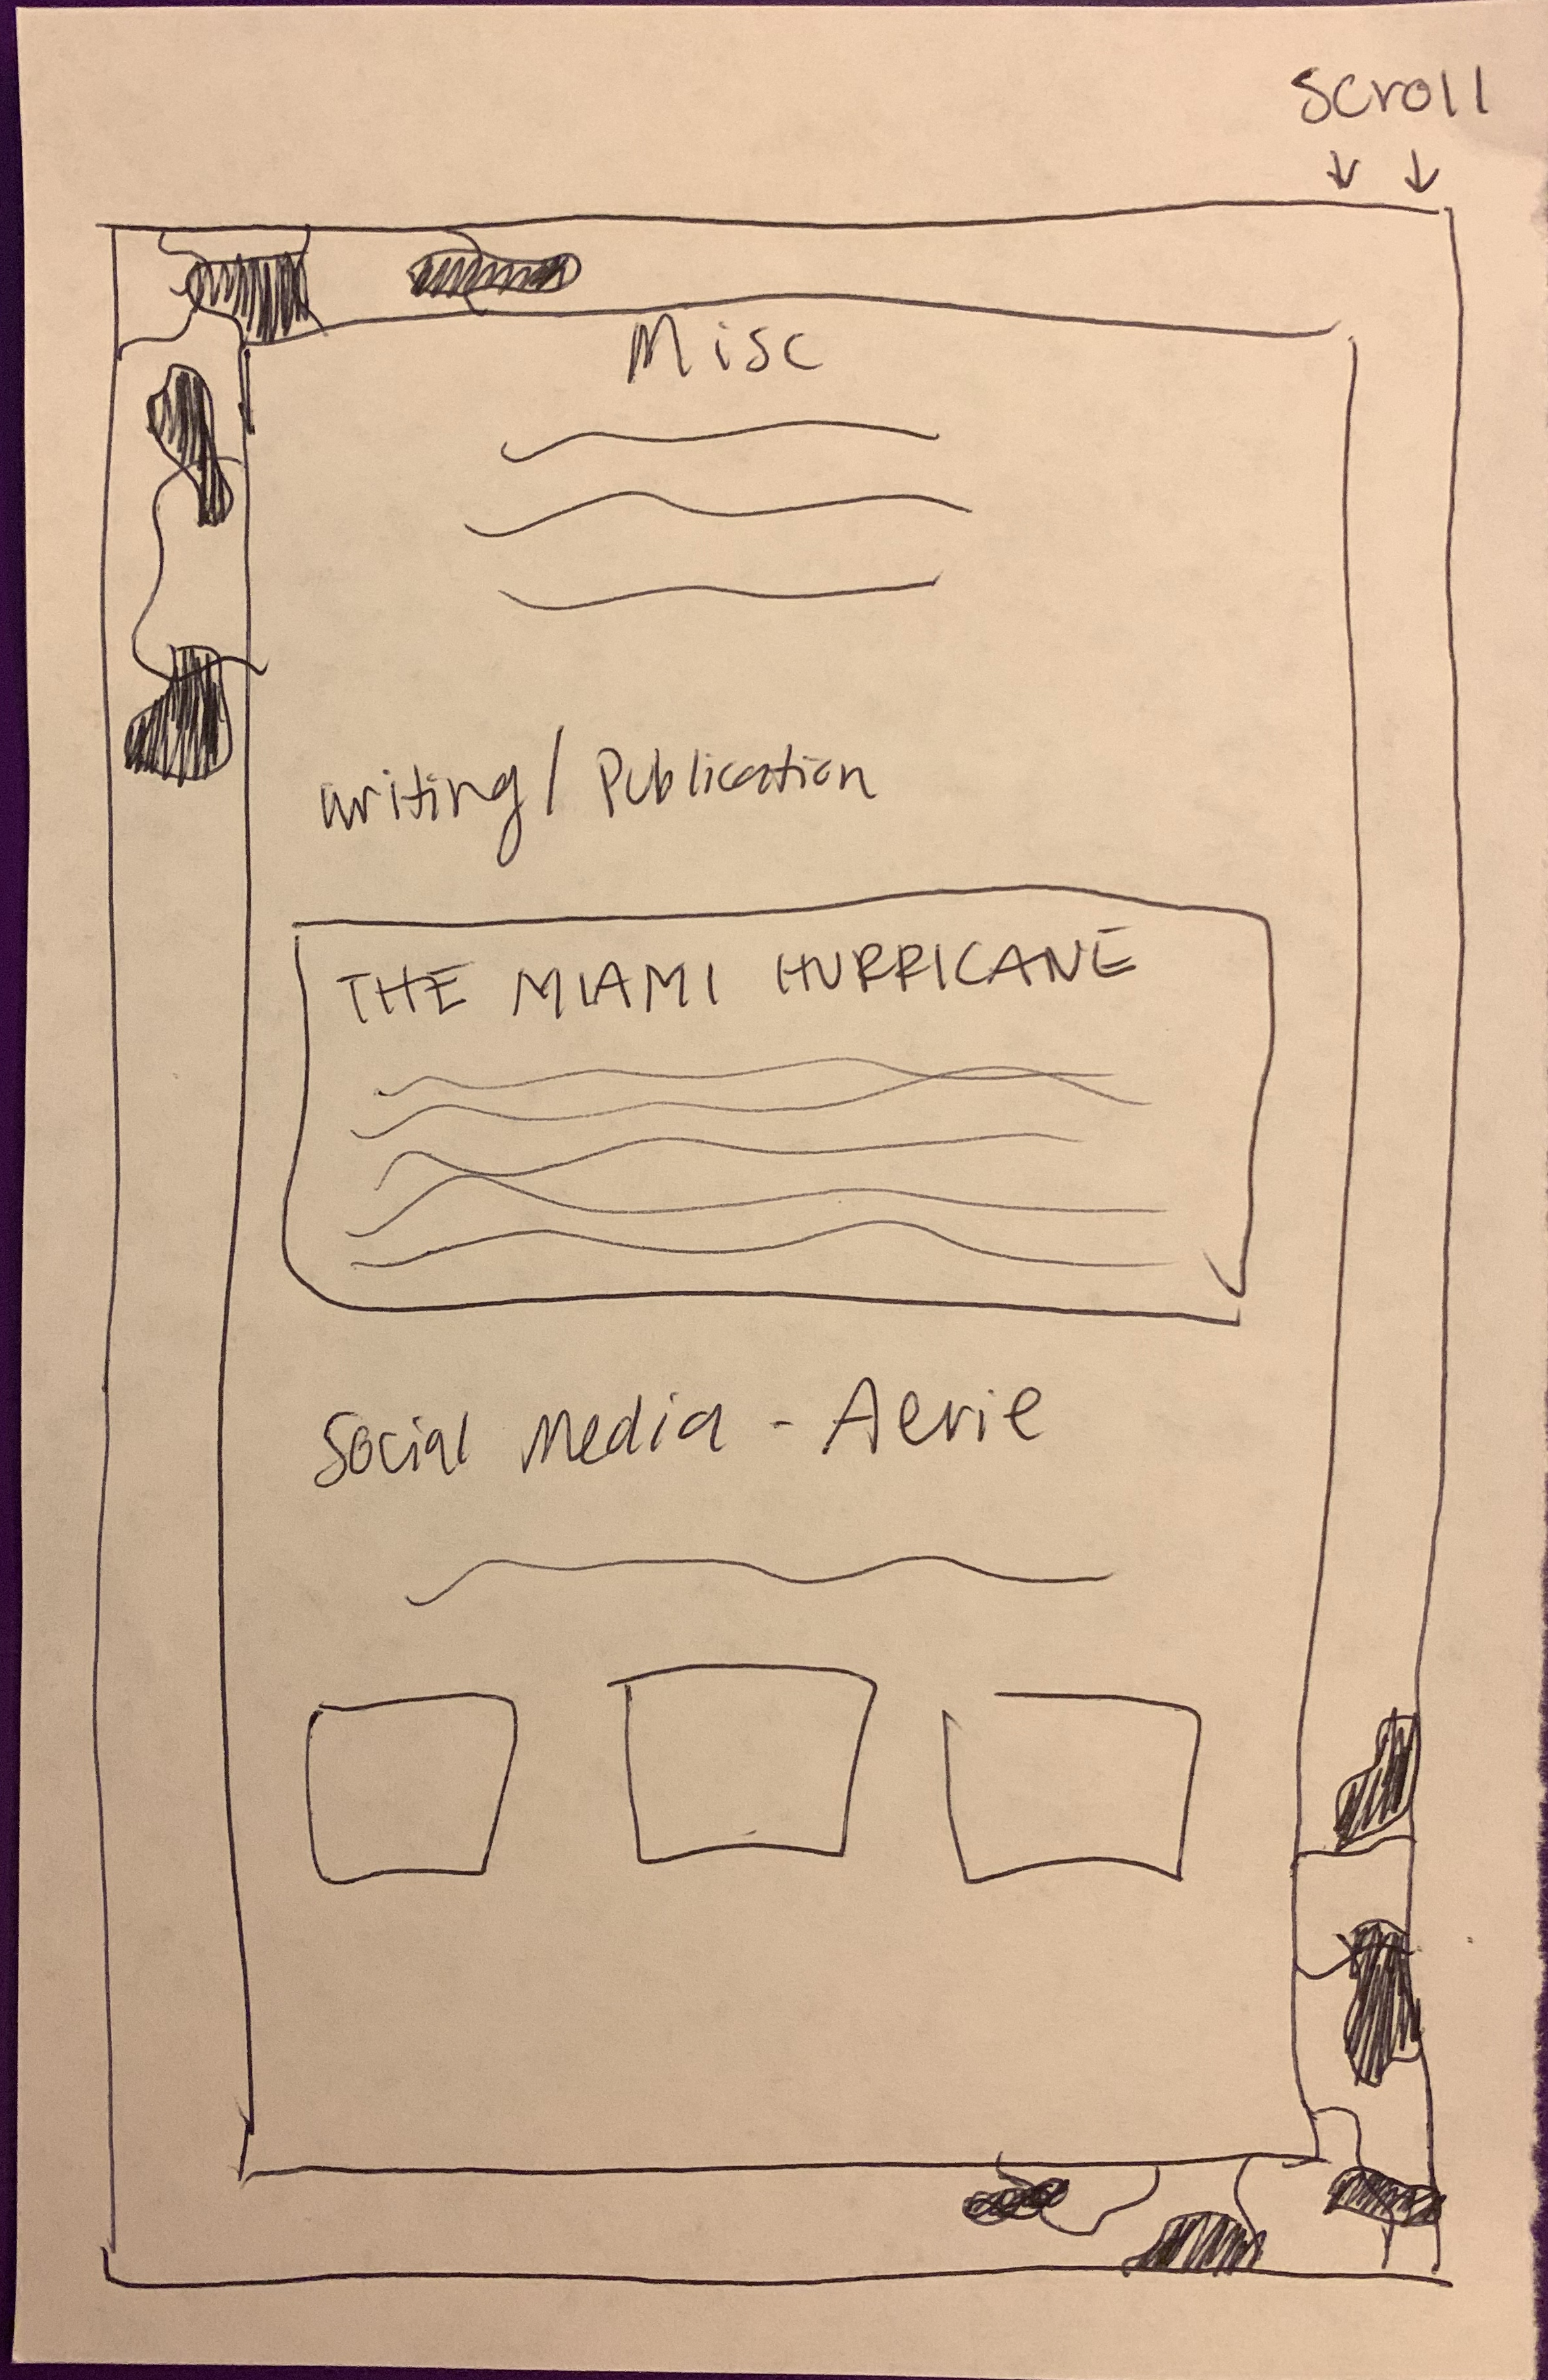 Scroll
Misc
writing/Publication
THE MIAMI HURRICANE
Social Media - Aerie